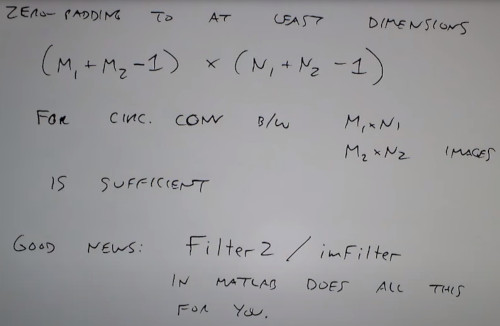 ZERO-PADDING TO AT LEAST DIMENSIONS
(M₁ + M₂ - 1) × (N₁ + N₂ - 1)
FOR CIRC. CONV B/W M₁×N₁
M₂×N₂ IMAGES
IS SUFFICIENT
GOOD NEWS: Filter2 / imFilter
IN MATLAB DOES ALL THIS
FOR YOU.